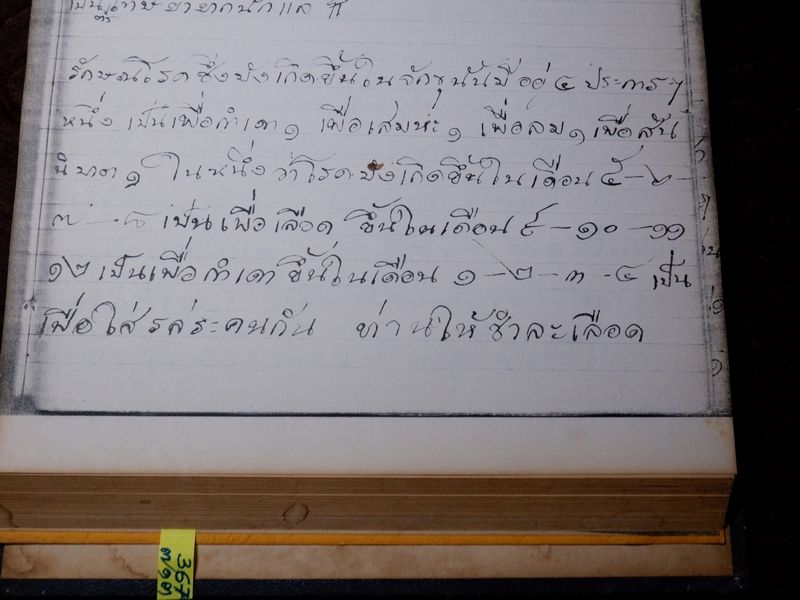 รักษณโรคซึ่งบังเกิดขึ้นในจักษุนั้นมีอยู่ ๔ ประการๆ
หนึ่ง เป็นเพื่อกำเดา ๑ เพื่อเสมหะ ๑ เพื่อลม ๑ เพื่อสัน
นิบาต ๑ ในหนึ่งว่าโรคบังเกิดขึ้นในเดือน ๕-๖-
๗-๘ เป็นเพื่อเลือด ขึ้นในเดือน ๙-๑๐-๑๑
๑๒ เป็นเพื่อกำเดาขึ้นในเดือน ๑-๒-๓-๔ เป็น
เพื่อใส่รสระคนกัน ท่านให้ชำละเลือด
367